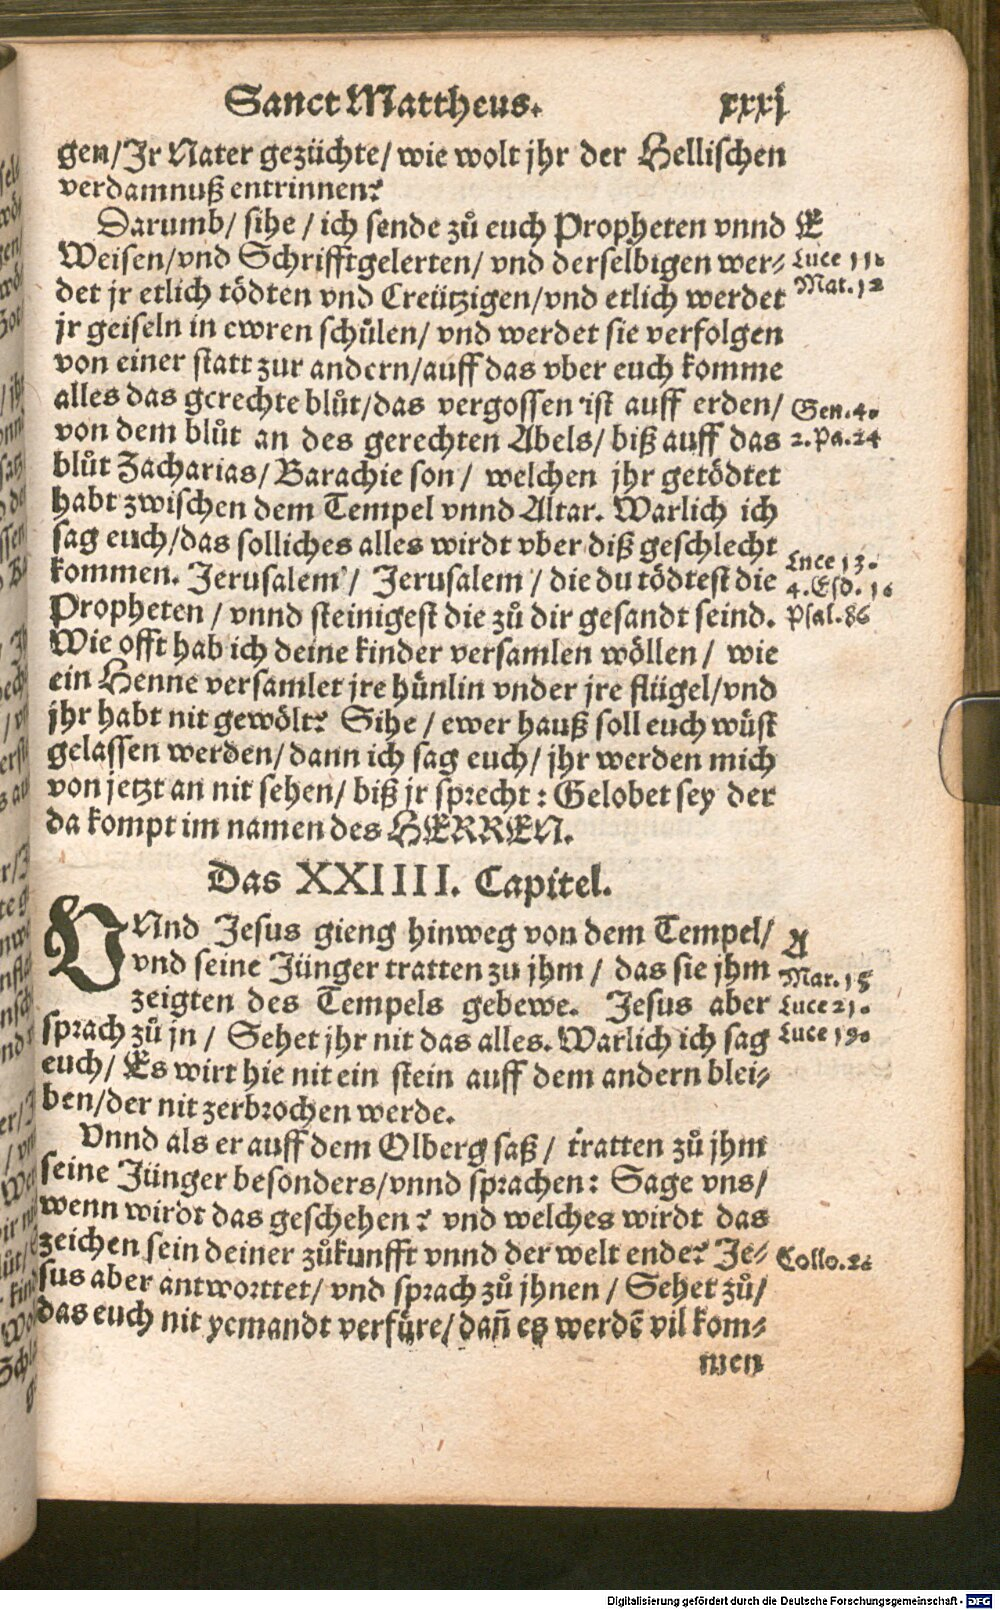 Sanct Mattheus. xxxj
gen/Jr Nater gezüchte/wie wolt jhr der Hellischen
verdamnuß entrinnen?
Darumb/ sihe / ich sende zů euch Propheten vnnd E
Weisen/vnd Schrifftgelerten/ vnd derselbigen wer- Luce 11.
det jr etlich tödten vnd Creützigen/vnd etlich werdet Mat.12
jr geiseln in ewren schůlen/ vnd werdet sie verfolgen
von einer statt zur andern/auff das vber euch komme
alles das gerechte blůt/das vergossen ist auff erden/ Gen.4.
von dem blůt an des gerechten Abels/ biß auff das 2.Pa.24
blůt Zacharias/ Barachie son/ welchen jhr getödtet
habt zwischen dem Tempel vnnd Altar. Warlich ich
sag euch/das solliches alles wirdt vber diß geschlecht Luce 13.
kommen. Jerusalem / Jerusalem / die du tödtest die 4.Esd. 1.
Propheten / vnnd steinigest die zů dir gesandt seind. Psal.86
Wie offt hab ich deine kinder versamlen wöllen/ wie
ein Henne versamlet jre hünlin vnder jre flügel/vnd
jhr habt nit gewölt? Sihe / ewer hauß soll euch wüst
gelassen werden/dann ich sag euch/ jhr werden mich
von jetzt an nit sehen/ biß jr sprecht: Gelobet sey der
da kompt im namen des HERREN.
Das XXIIII. Capitel.
VNnd Jesus gieng hinweg von dem Tempel/ A
vnd seine Jünger tratten zu jhm / das sie jhm Mar.13
zeigten des Tempels gebewe. Jesus aber Luce 21.
sprach zů jn / Sehet jhr nit das alles. Warlich ich sag Luce 19.
euch/ Es wirt hie nit ein stein auff dem andern blei-
ben/der nit zerbrochen werde.
Vnnd als er auff dem Olberg saß/ tratten zů jhm
seine Jünger besonders/vnnd sprachen: Sage vns/
wenn wirdt das geschehen? vnd welches wirdt das
zeichen sein deiner zůkunfft vnnd der welt ende? Je- Collo.2.
sus aber antworttet/ vnd sprach zů jhnen / Sehet zů/
das euch nit yemandt verfüre/dañ es werdē vil kom-
men
Digitalisierung gefördert durch die Deutsche Forschungsgemeinschaft - DFG